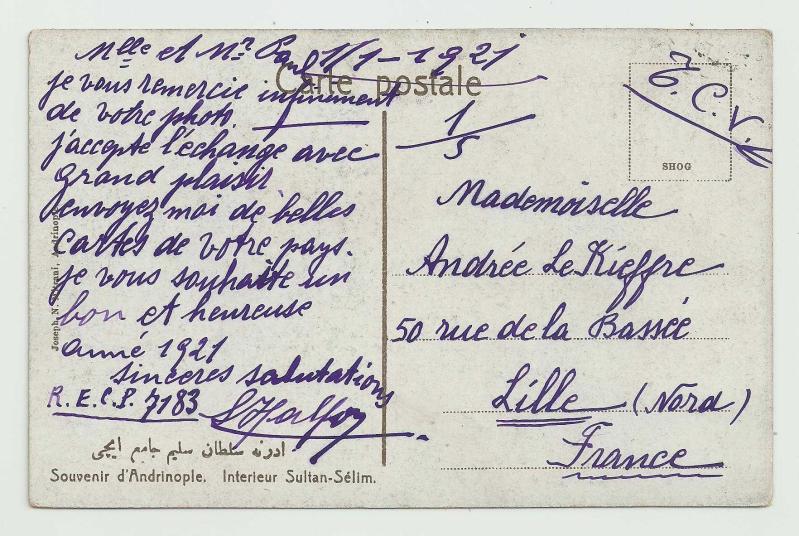 Mlle et Mr Paul 1/1-1921
Carte postale
je vous remercie infiniment
de votre photo.
j'accepte l'échange avec
grand plaisir
envoyez moi de belles
cartes de votre pays.
je vous souhaite un
bon et heureuse
anné 1921
sinceres salutations
R.E.C.P. 7183
ادرنه سلطان سلیم جامع ایچی
Souvenir d'Andrinople. Interieur Sultan-Sélim.
Joseph, N. Andrinople
T.C.V.
SHOG
1/5
Mademoiselle
Andrée Le Kieffre
50 rue de la Bassée
Lille (Nord)
France